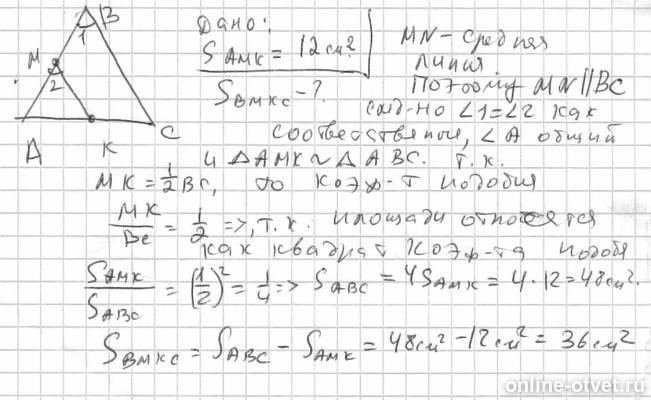 B
1
M
2
A
K
C
Дано:
S AMK = 12 см²
S BMKC - ?
MN - средняя
линия
Поэтому MN || BC
след-но ∠1=∠2 как
соответственные, ∠A общий
и △AMK ~ △ABC. Т.к.
MK = 1/2 BC, то коэф-т подобия
MK/BC = 1/2 =>, т.к. площади относятся
как квадрат коэф-та подобия
S AMK / S ABC = (1/2)² = 1/4 => S ABC = 4 S AMK = 4 · 12 = 48 см².
S BMKC = S ABC - S AMK = 48 см² - 12 см² = 36 см²
online-otvet.ru